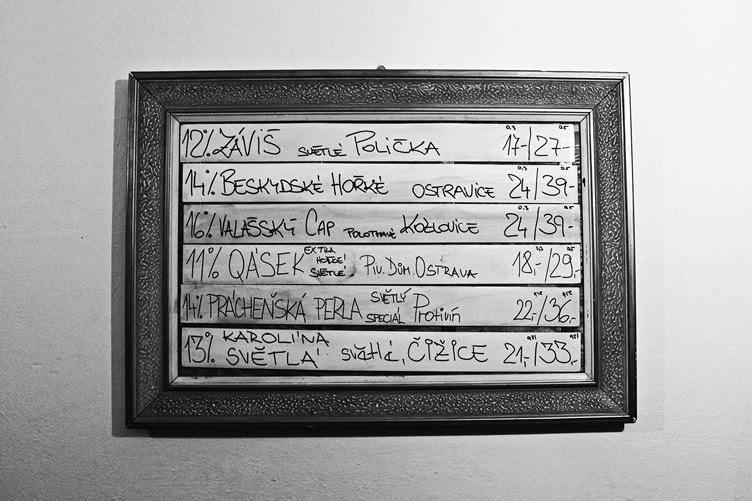 12% ZÁVIŠ SVĚTLÉ POLIČKA 0,3 0,5 17-/27-
14% BESKYDSKÉ HOŘKÉ OSTRAVICE 24/39-
16% VALAŠSKÝ CAP POLOTMAVÉ KOZLOVICE 0,3 0,5 24/39-
11% QÁSEK EXTRA HOŘKÉ SVĚTLÉ PIV. DŮM. OSTRAVA 0,3 0,5 18,-/29,-
14% PRÁCHEŇSKÁ PERLA SVĚTLÝ SPECIÁL Protivín 22,-/36,-
13% KAROLÍNA SVĚTLÁ světlé, ČIŽICE 21,-/33,-